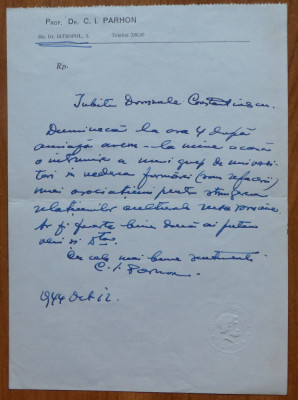 Prof. Dr. C. I. PARHON
Str. Dr. RATROPOL, 3. Telefon
Rp.
Iubite Domnule Constantinescu.
Duminecă la ora 4 după
amiază avem la mine acasă
o întrunire a unui grup de
în vederea formării (sau refacerii)
unei asociațiuni pentru strângerea
relațiunilor culturale
Ar fi foarte bine dacă ai putea
veni și
Cu cele mai bune sentimente
C. I. Parhon.
1944 Oct 12.